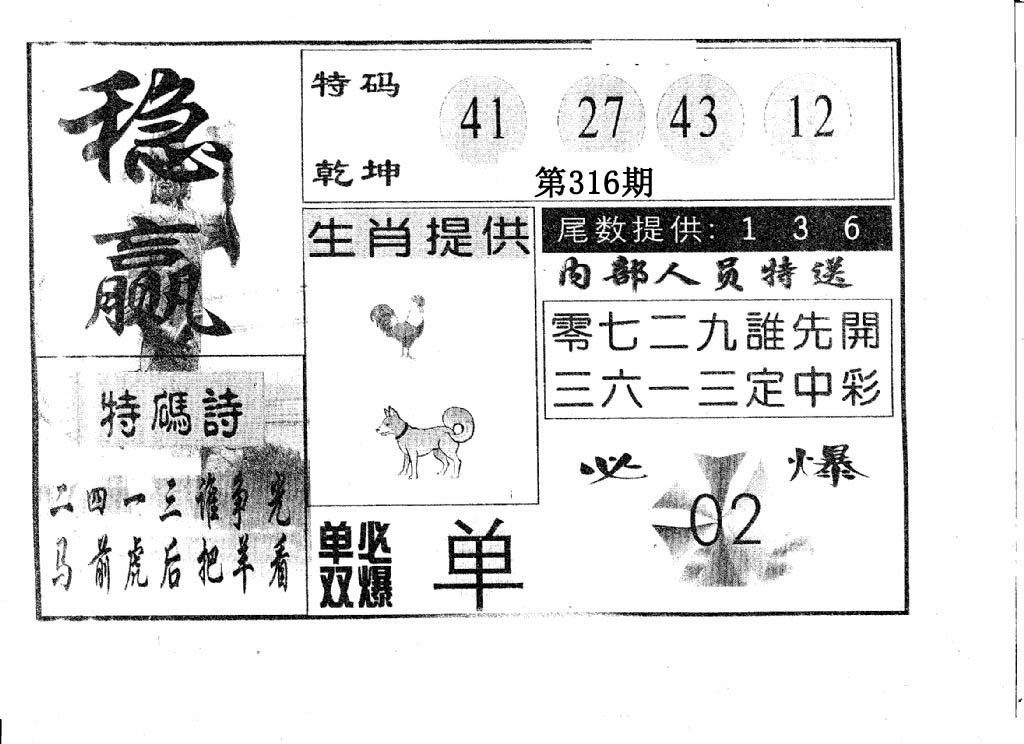 稳
赢
特码
41 27 43 12
乾坤
第316期
生肖提供
尾数提供: 1 3 6
内部人员特送
零七二九誰先開
三六一三定中彩
特碼詩
二四一三谁争光
马前虎后把羊看
单必
双爆
单
必爆
02